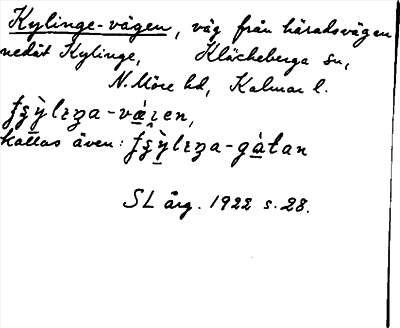 Kylinge-vägen, väg från häradsvägen
nedåt Kylinge, Kläckeberga sn,
N. Möre hd, Kalmar l.
kallas även:
SL årg. 1922 s. 28.